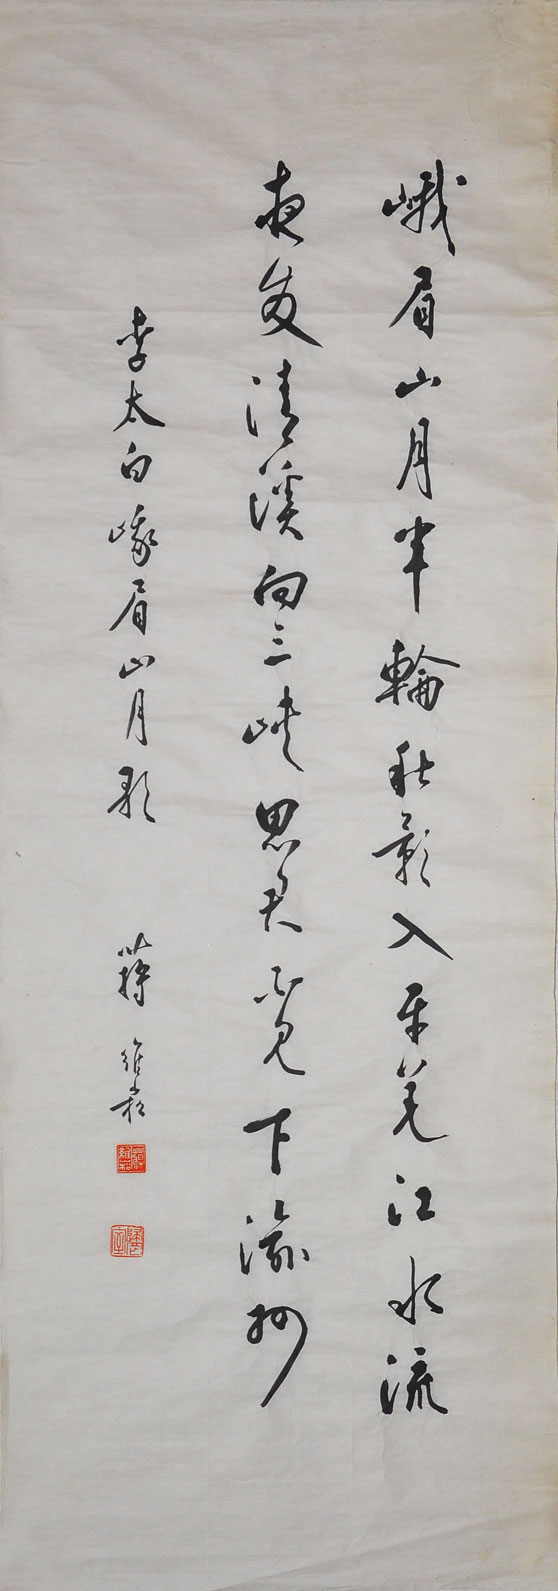 峨眉山月半輪秋影入平羌江水流
夜發清溪向三峽思君不見下渝州
李太白峨眉山月歌
蔣維崧